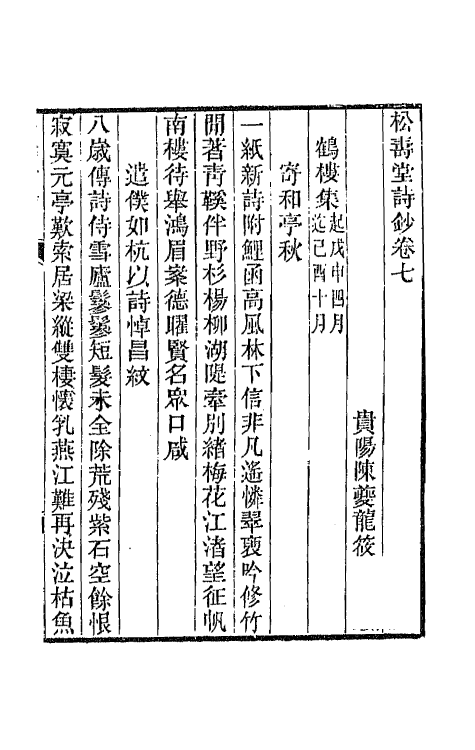 松壽堂詩鈔卷七
貴陽陳夔龍筱
鶴樓集起戊申四月
迄己酉十月
寄和亭秋
一紙新詩附鯉函高風林下信非凡遙憐翠裏吟修竹
閒著青鞵伴野杉楊柳湖隄牽別緒梅花江渚望征帆
南樓待舉鴻眉案德曜賢名眾口咸
遣僕如杭以詩悼昌紋
八歲傳詩侍雪廬鬖鬖短髮未全除荒殘紫石空餘恨
寂寞元亭歎索居梁縱雙棲懷乳燕江難再決泣枯魚